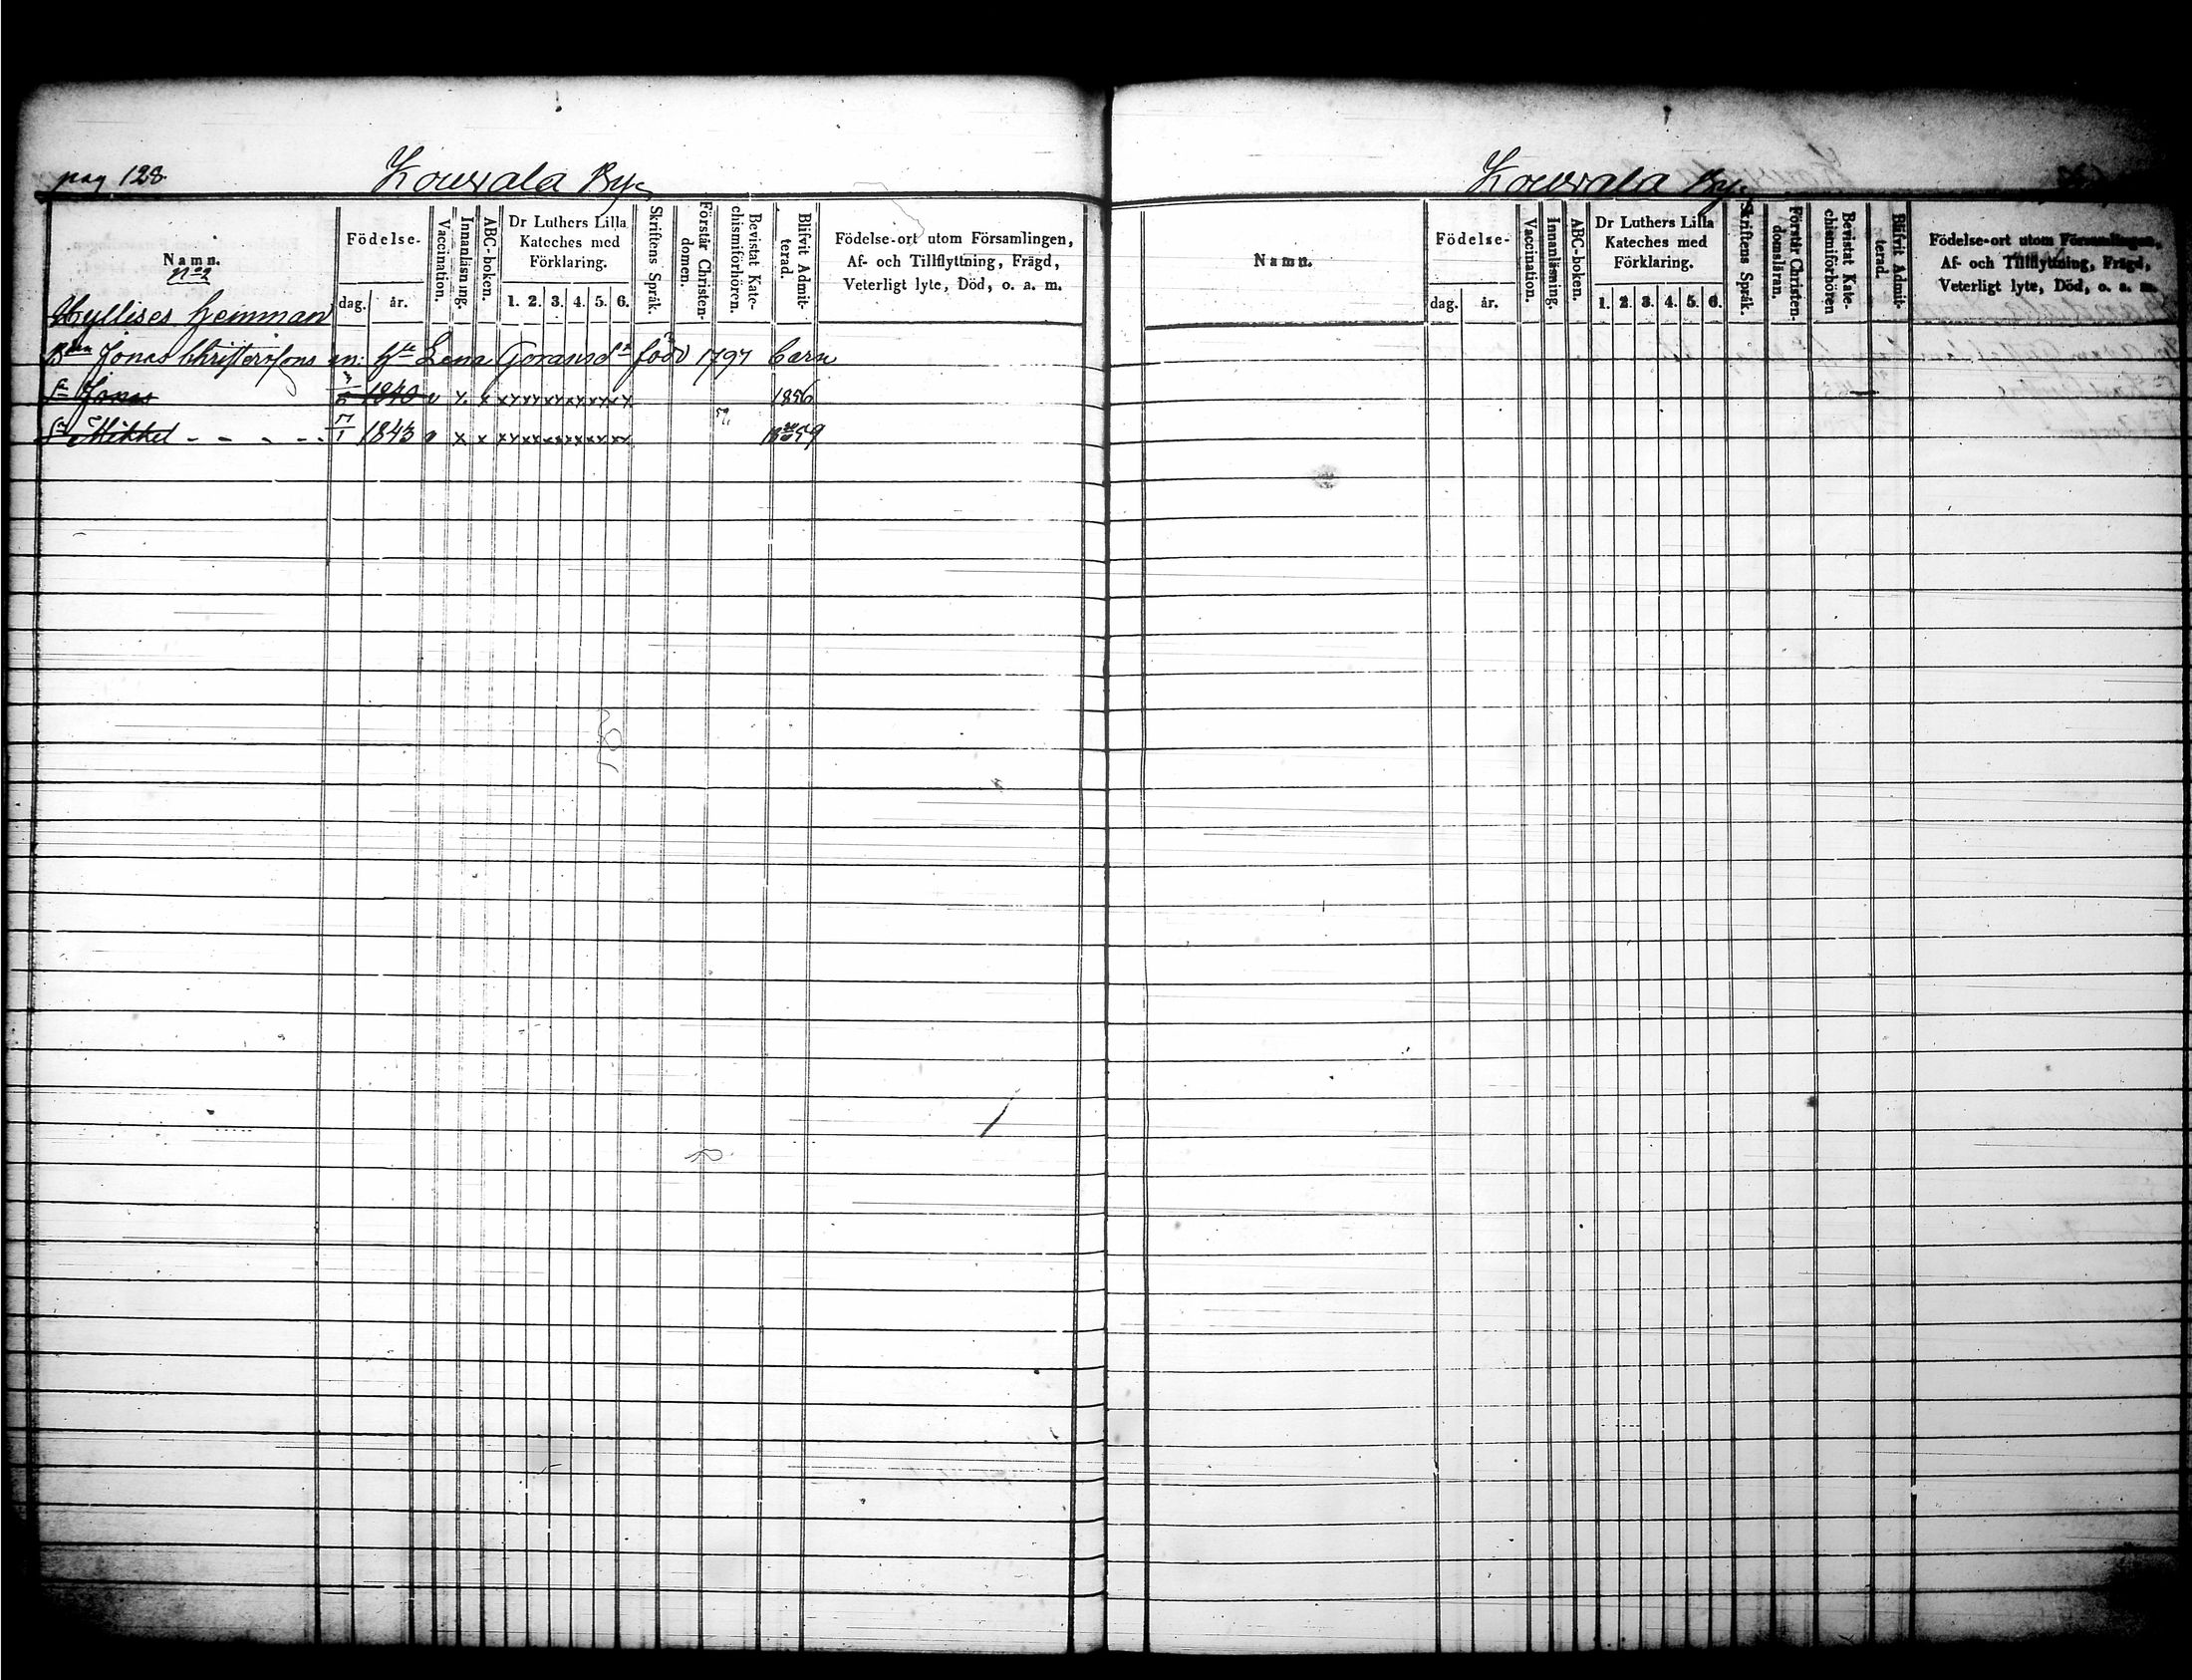 pag 128.
Kouvala By
Namn.
No 2
Födelse-
dag. år.
Vaccination.
Innanläsning.
ABC-boken.
Dr Luthers Lilla Kateches med Förklaring.
1. 2. 3. 4. 5. 6.
Skriftens Språk.
Förstår Christen-domen.
Bevistat Kate-chismiförhören.
Blifvit Admit-terad.
Födelse-ort utom Församlingen,
Af- och Tillflyttning, Frägd,
Veterligt lyte, Död, o. a. m.
Hyllises hemman
Bdn Jonas Christersons m: h. Lena Göransdr född 1797 barn
Sn Jonas 1840 v x x xx xx xx xx xx xx 1856
Sn Mikkel - - - - 17/1 1843 v x x xx xx xx xx xx xx 59
Kouvala By
Namn.
Födelse-
dag. år.
Vaccination.
Innanläsning.
ABC-boken.
Dr Luthers Lilla
Kateches med
Förklaring.
1. 2. 3. 4. 5. 6.
Skriftens Språk.
Förstår Christen-domsläran.
Bevistat Kate-chismiförhören
Blifvit Admit-terad.
Födelse-ort utom Församlingen,
Af- och Tillflyttning, Frägd,
Veterligt lyte, Död, o. a. m.